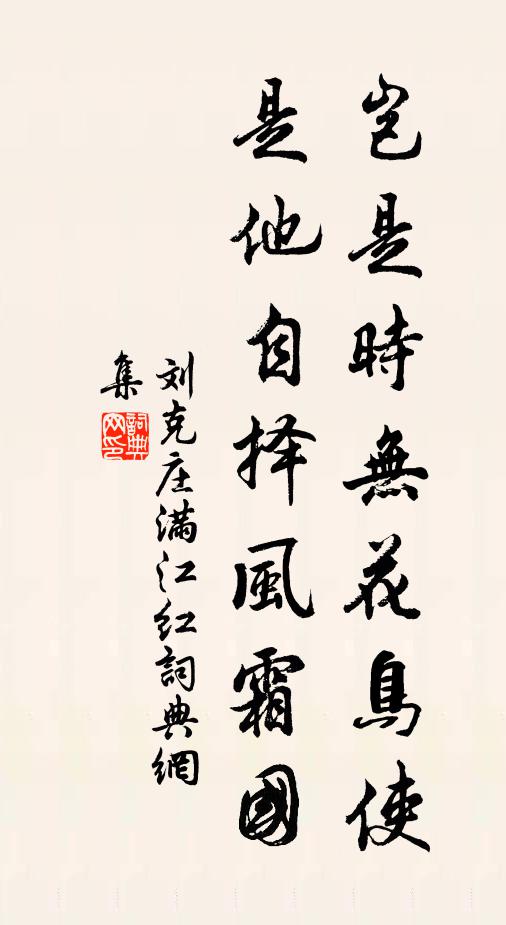 岂是時無花鳥使
是他自择風霜國
刘克庄满江红詞典網
集
詞典网印